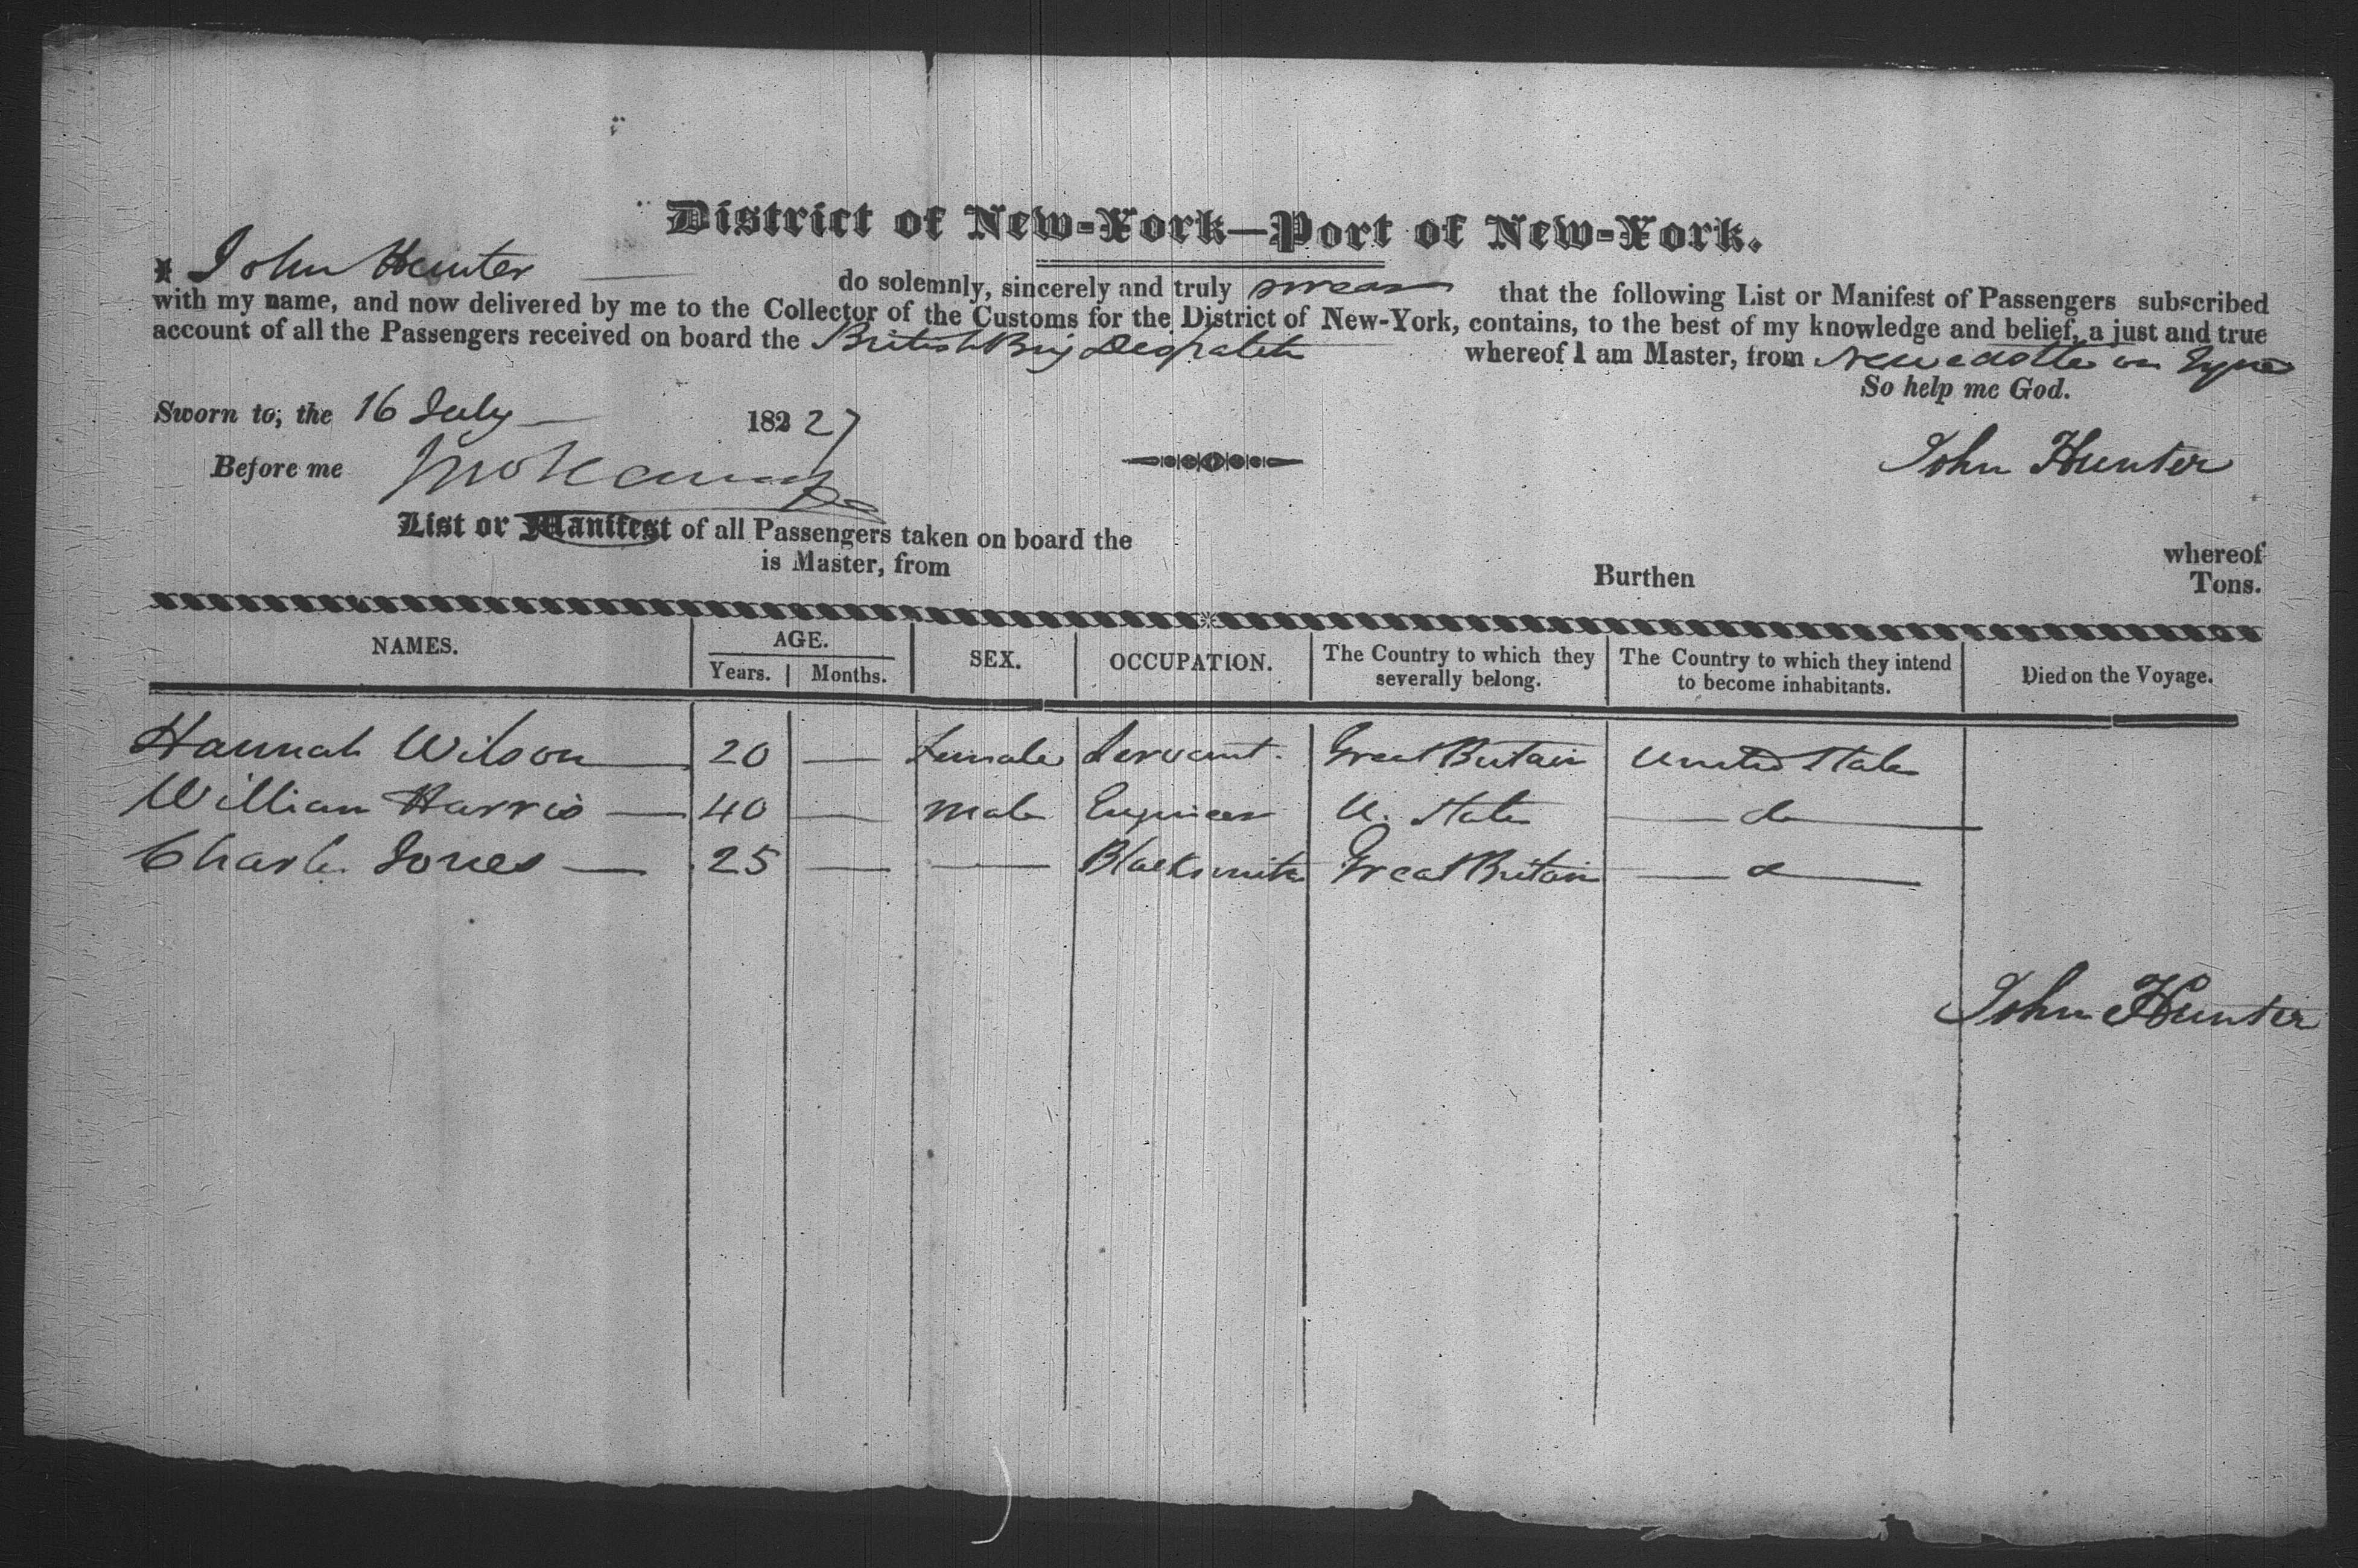 District of New-York—Port of New-York.
I John Hunter do solemnly, sincerely and truly swear that the following List or Manifest of Passengers subscribed
with my name, and now delivered by me to the Collector of the Customs for the District of New-York, contains, to the best of my knowledge and belief, a just and true
account of all the Passengers received on board the British Brig Despatch whereof I am Master, from Newcastle on Tyne
So help me God.
Sworn to, the 16 July 182 27
Before me
John Hunter
List or Manifest of all Passengers taken on board the whereof
is Master, from Burthen Tons.
NAMES. AGE. SEX. OCCUPATION. The Country to which they severally belong. The Country to which they intend to become inhabitants. Died on the Voyage.
Years. Months.
Hannah Wilson — 20 — Female Servant. Great Britain United States
William Harris — 40 — Male Engineer U. States — do —
Charles Jones — 25 — — Blacksmith Great Britain — do —
John Hunter